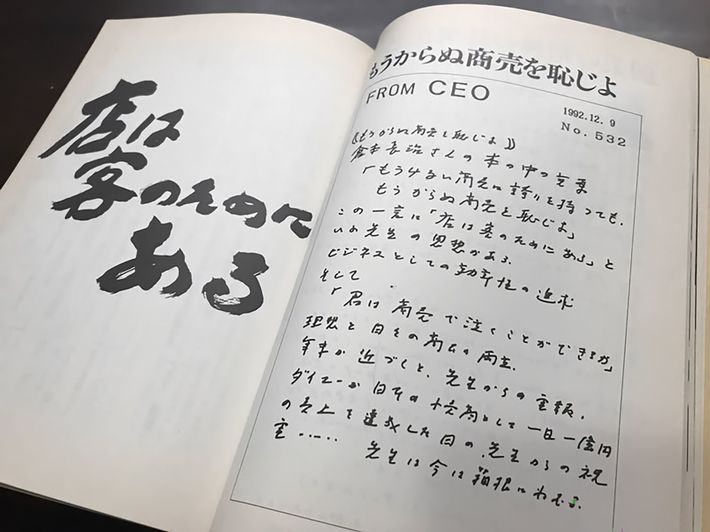 店は
客のために
ある
もうからぬ商売を恥じよ
FROM CEO
1992.12.9
No.532
《もうからぬ商売を恥じよ》
倉本長治さんの本の中の言葉
「もうけない商売に誇りを持っても、
もうからぬ商売を恥じよ」
この一言に「店は客のためにある」と
いう先生の思想がある。
ビジネスとしての効率性の追求
そして
「君は商売で泣くことができるか」
理想と日々の商いの両立。
年末が近づくと、先生からの電報。
ダイエーが日本の として一日一億円
の売上を達成した日の先生からの祝
電…… 先生は今は箱根にねむる。